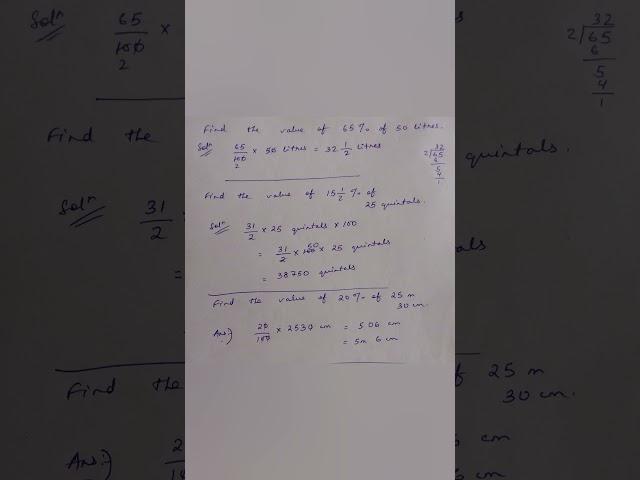 Find the value of 65% of 50 litres.
Solⁿ 65/100 × 50 litres = 32 1/2 litres
2
32
2)65
6
5
4
1
Find the value of 15 1/2 % of
25 quintals.
Solⁿ 31/2 × 25 quintals × 100
= 31/2 × 100 × 25 quintals
50
= 38750 quintals
Find the value of 20% of 25 m
30 cm.
Ans:) 20/100 × 2530 cm = 506 cm
= 5m 6 cm